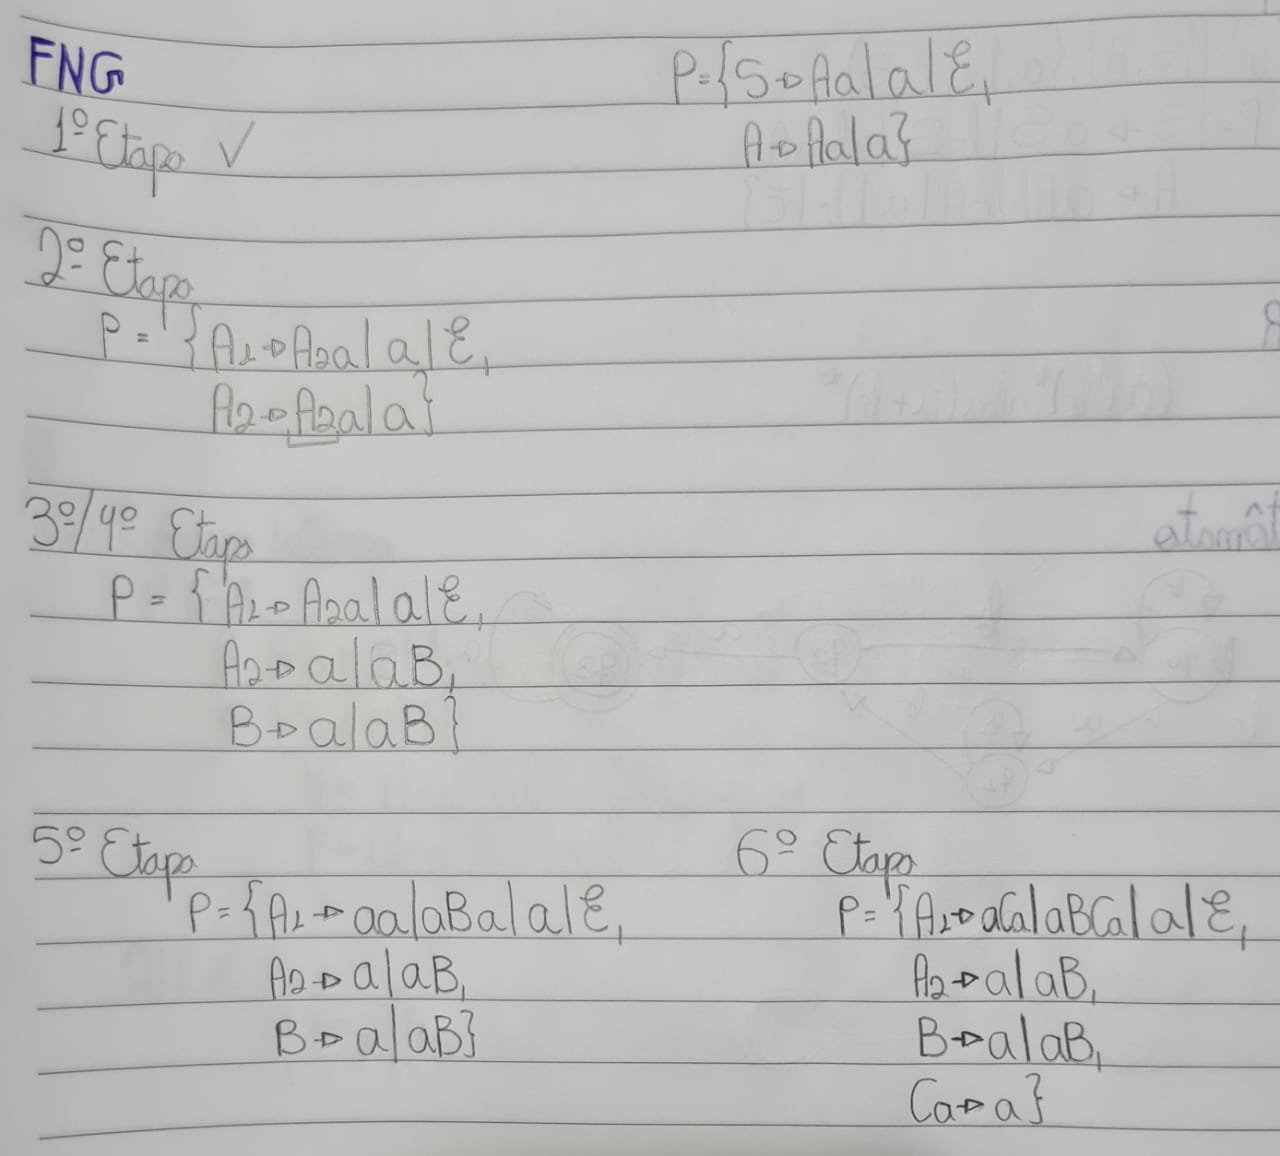 FNG
P={S→Aa|a|ε,
1º Etapa ✓
A→Aa|a}
2º Etapa
P = {A1→A2a|a|ε,
A2→A2a|a}
3º/4º Etapa
P = {A1→A2a|a|ε,
A2→a|aB,
B→a|aB}
5º Etapa
P={A1→aa|aBa|a|ε,
A2→a|aB,
B→a|aB}
6º Etapa
P={A1→aCa|aBCa|a|ε,
A2→a|aB,
B→a|aB,
Ca→a}